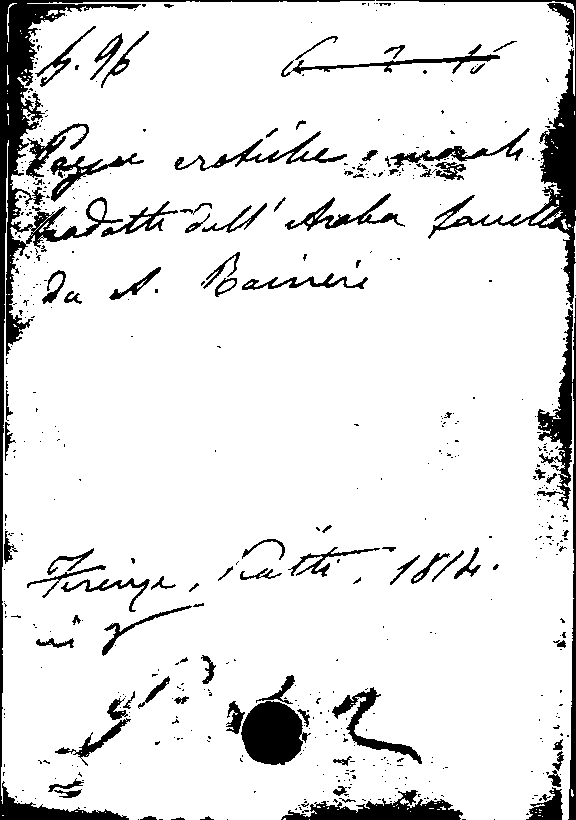 5. 96 6. 2. 15
Poesie erotiche e morali
tradotte dall' Araba favella
da A. Rainieri
Firenze, Piatti, 1814.
in 8